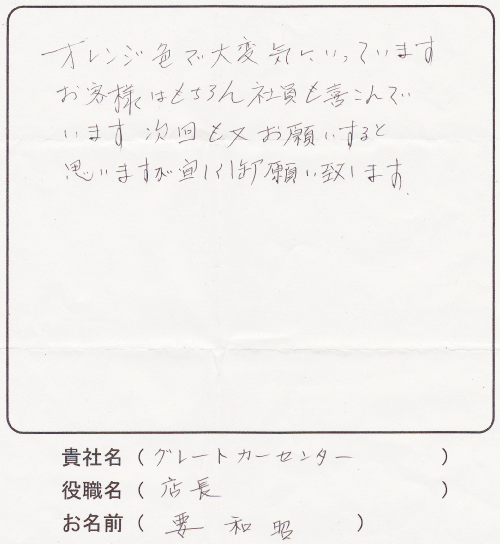 オレンジ色で大変気にいっています
お客様はもちろん社員も喜こんで
います 次回も又お願いすると
思いますが宜しく御願い致します
貴社名（グレートカーセンター）
役職名（店長）
お名前（要 和昭）